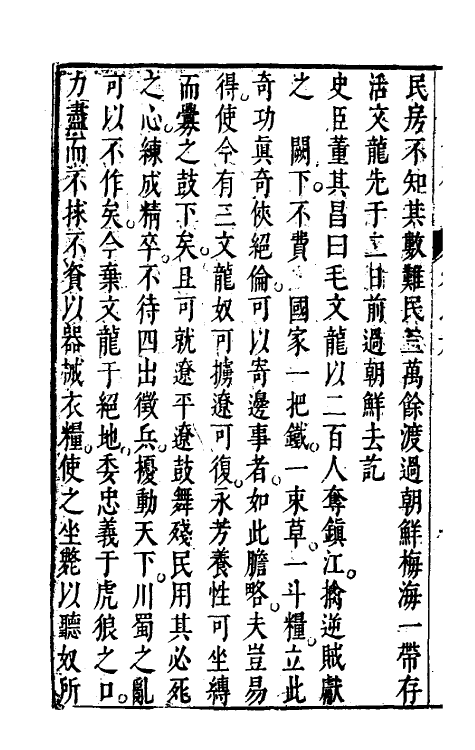 民房不知其數難民三萬餘渡過朝鮮梅海一帶存
活文龍先于二日前過朝鮮去訖
史臣董其昌曰毛文龍以二百人奪鎮江。擒逆賊獻
之　闕下。不費　國家一把鐵。一束草。一斗糧。立此
奇功眞奇俠絕倫。可以寄邊事者。如此膽略。夫豈易
得。使今有三文龍奴可擄遼可復。永芳養性可坐縛
而釁之鼓下矣。且可就遼平遼鼓舞殘民用其必死
之心。練成精卒。不待四出徵兵。擾動天下。川蜀之亂
可以不作矣。今棄文龍于絕地。委忠義于虎狼之口。
力盡而不捄不資以器械衣糧。使之坐斃以聽奴所